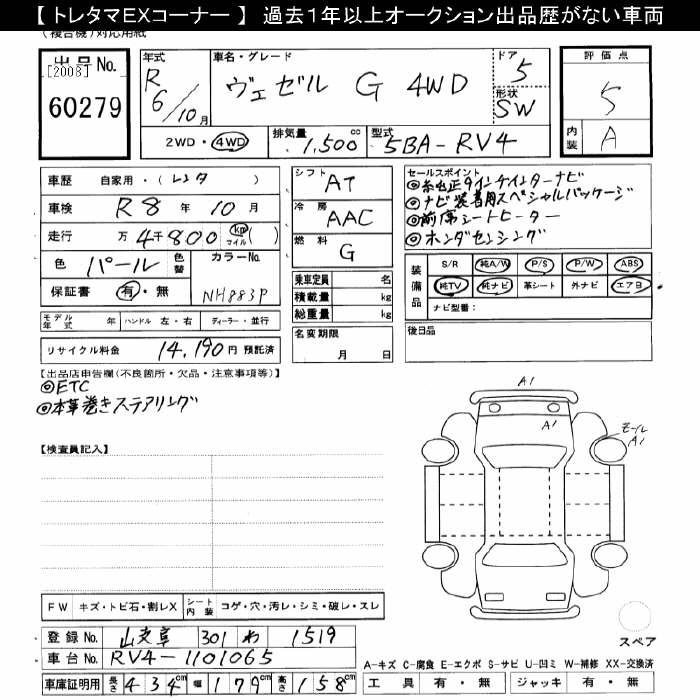 【 トレタマEXコーナー 】 過去1年以上オークション出品歴がない車両
(複合機)対応用紙
出品No.
[2008]
60279
年式
R
6/10月
車名・グレード
ヴェゼル G 4WD
ドア
5
形状
SW
評価点
5
内装
A
2WD・4WD
排気量
1,500cc
型式
5BA-RV4
車歴 自家用・(レンタ)
車検 R8年10月
走行 万4千800 km マイル( )
色 パール 色替 カラーNo.
NH883P
保証書 有・無
シフト
AT
冷房
AAC
燃料
G
乗車定員 名
積載量 kg
総重量 kg
名変期限
月 日
セールスポイント
◎純正9インチインターナビ
◎ナビ装着用スペシャルパッケージ
◎前席シートヒーター
◎ホンダセンシング
装備品
S/R 純A/W P/S P/W ABS
純TV 純ナビ 革シート 外ナビ エアB
ナビ型番:
後日品
モデル年式 年 ハンドル 左・右 ディーラー・並行
リサイクル料金 14,190円 預託済
【出品店申告欄(不良箇所・欠品・注意事項等)】
◎ETC
◎本革巻きステアリング
【検査員記入】
A1
A1
モール
A1
FW キズ・トビ石・割レX シート内装 コゲ・穴・汚レ・シミ・破レ・スレ
登録No. 301 わ 1519
車台No. RV4-1101065
車庫証明用 長さ 434cm 幅 179cm 高さ 158cm
スペア
A-キズ C-腐食 E-エクボ S-サビ U-凹ミ W-補修 XX-交換済
工具 有・無 ジャッキ 有・無